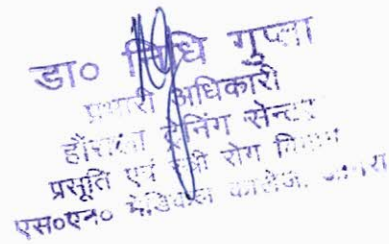 डा० निधि गुप्ता
प्रभारी अधिकारी
हौसला ट्रेनिंग सेन्टर
प्रसूति एवं स्त्री रोग विभाग
एस०एन० मेडिकल कालेज, आगरा